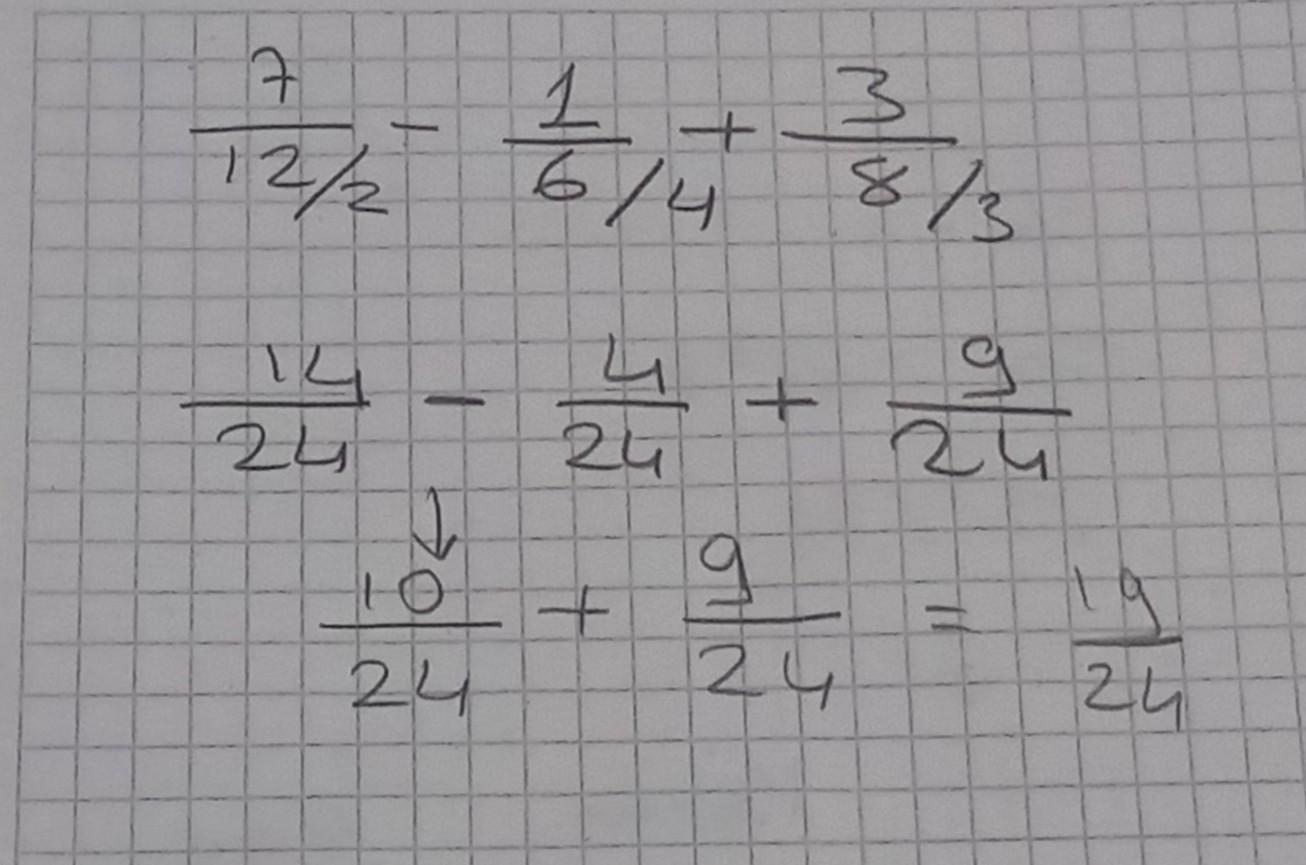 7/12/2 - 1/6/4 + 3/8/3
14/24 - 4/24 + 9/24
↓
10/24 + 9/24 = 19/24